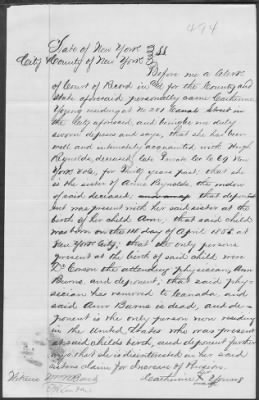 494
State of New York
City & County of New York } SS
Before me a Clerk
of Court of Record in & for the County and
State aforesaid personally came Catherine
Young residing at No 201 Canal Street in
the City aforesaid, and being by me duly
sworn deposes and says, that she has been
well and intimately acquainted with Hugh
Reynolds, deceased, late Private Co 69 New
York Vols, for thirty years past, that she
is the sister of Anne Reynolds, the widow
of said deceased, that deponent
was present with her said sister at the
birth of her child Ann, that said child
was born on the 1st day of April 1856 at
New York City; that the only persons
present at the birth of said child were
Dr the attending physician, Ann
Burns, and deponent; that said phy-
sician has removed to Canada, and
said Ann Burns is dead, and de-
ponent is the only person now residing
in the United States who was present
at said child's birth, and deponent further
says that she is disinterested in her said
sisters claim for Increase of Pension.
Catherine X Young
mark
Witness